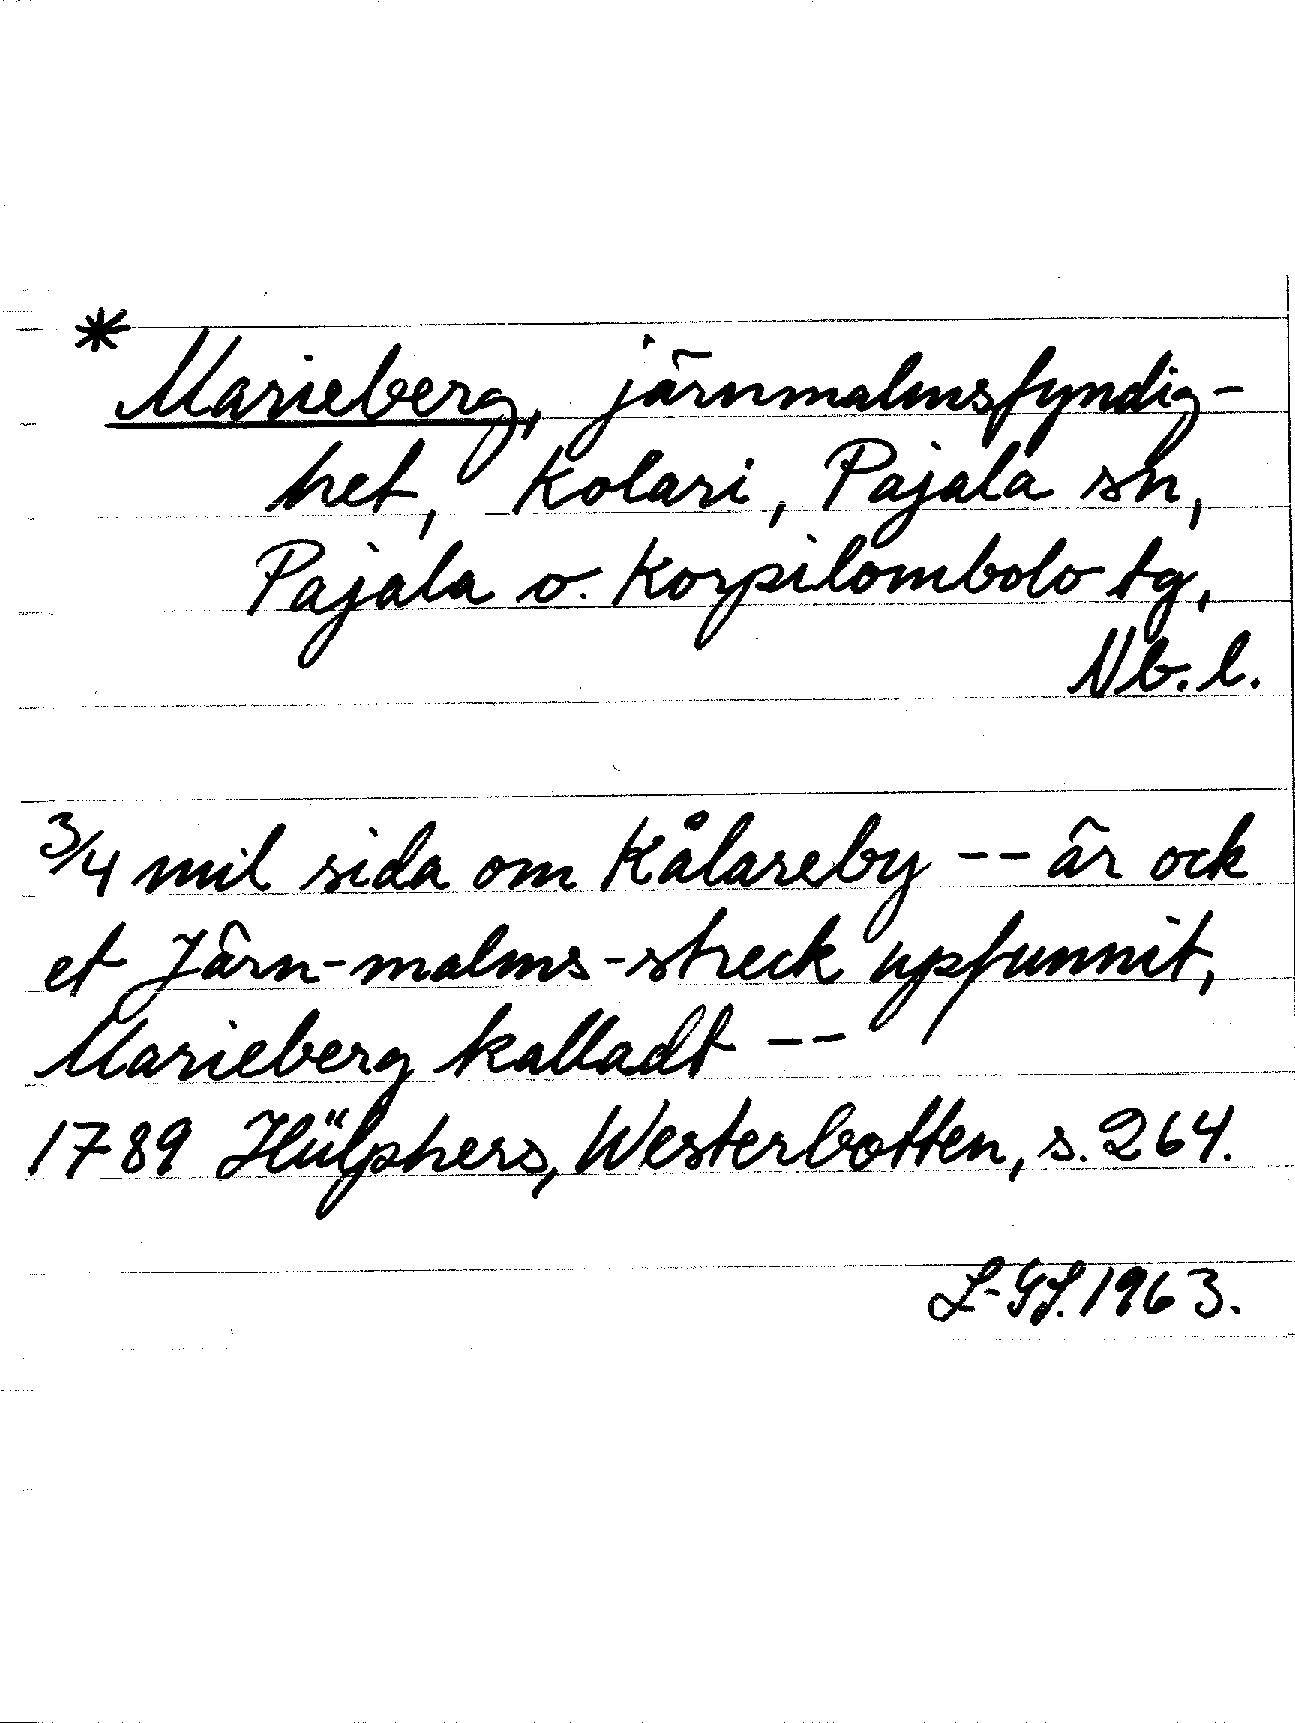 * Marieberg, järnmalmsfyndig-
het, Kolari, Pajala sn,
Pajala o. Korpilombolo tg,
Nb. l.
3/4 mil sida om Kålareby -- är ock
et Järn-malms-streck upfunnit,
Marieberg kalladt --
1789 Hülphers, Westerbotten, s. 264.
L-GS. 1963.